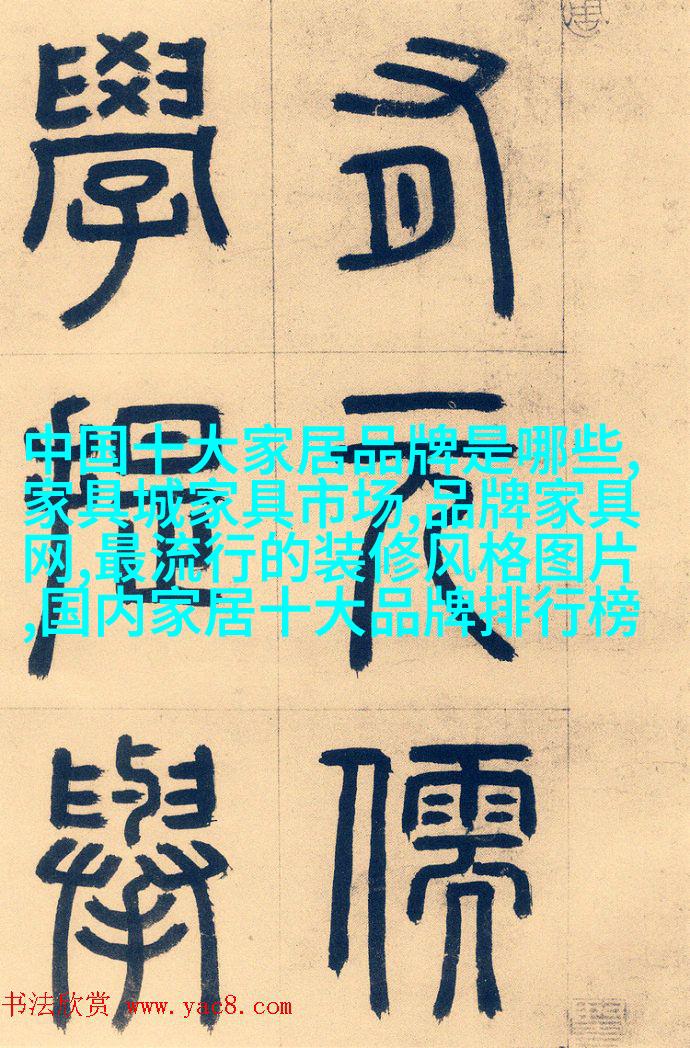 有元儒
學提舉
中国十大家居品牌是哪些,
家具城家具市场,品牌家具
网,最流行的装修风格图片
,国内家居十大品牌排行榜
书法欣赏 www.yac8.com